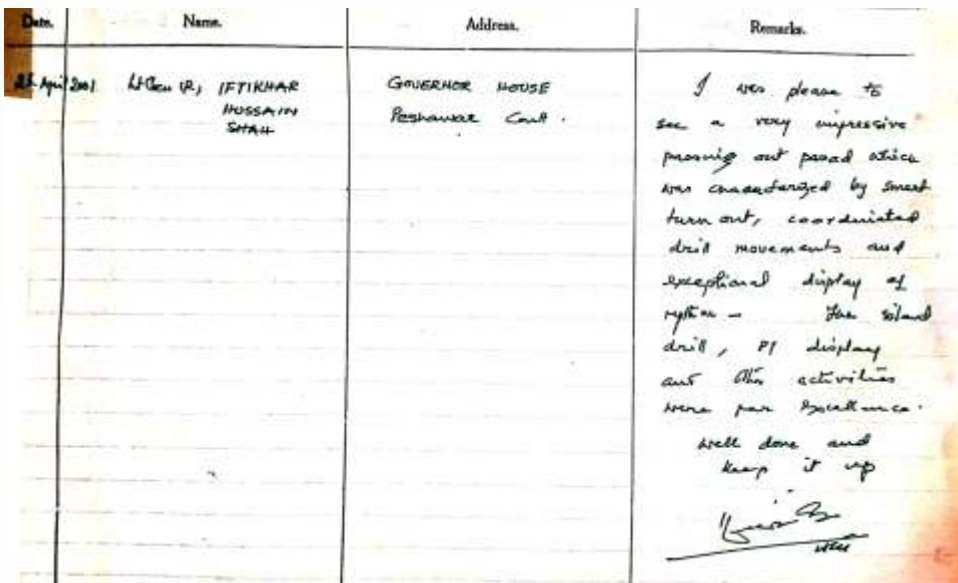 Date. Name. Address. Remarks.
April 2001 Lt Gen (R) IFTIKHAR GOVERNOR HOUSE I was please to
HUSSAIN Peshawar Cantt. see a very impressive
SHAH passing out parad which
was characterized by smart
turn out, coordinated
drill movements and
exceptional display of
rythm - The silent
drill, PT display
and other activities
were par Excellence.
Well done and
keep it up